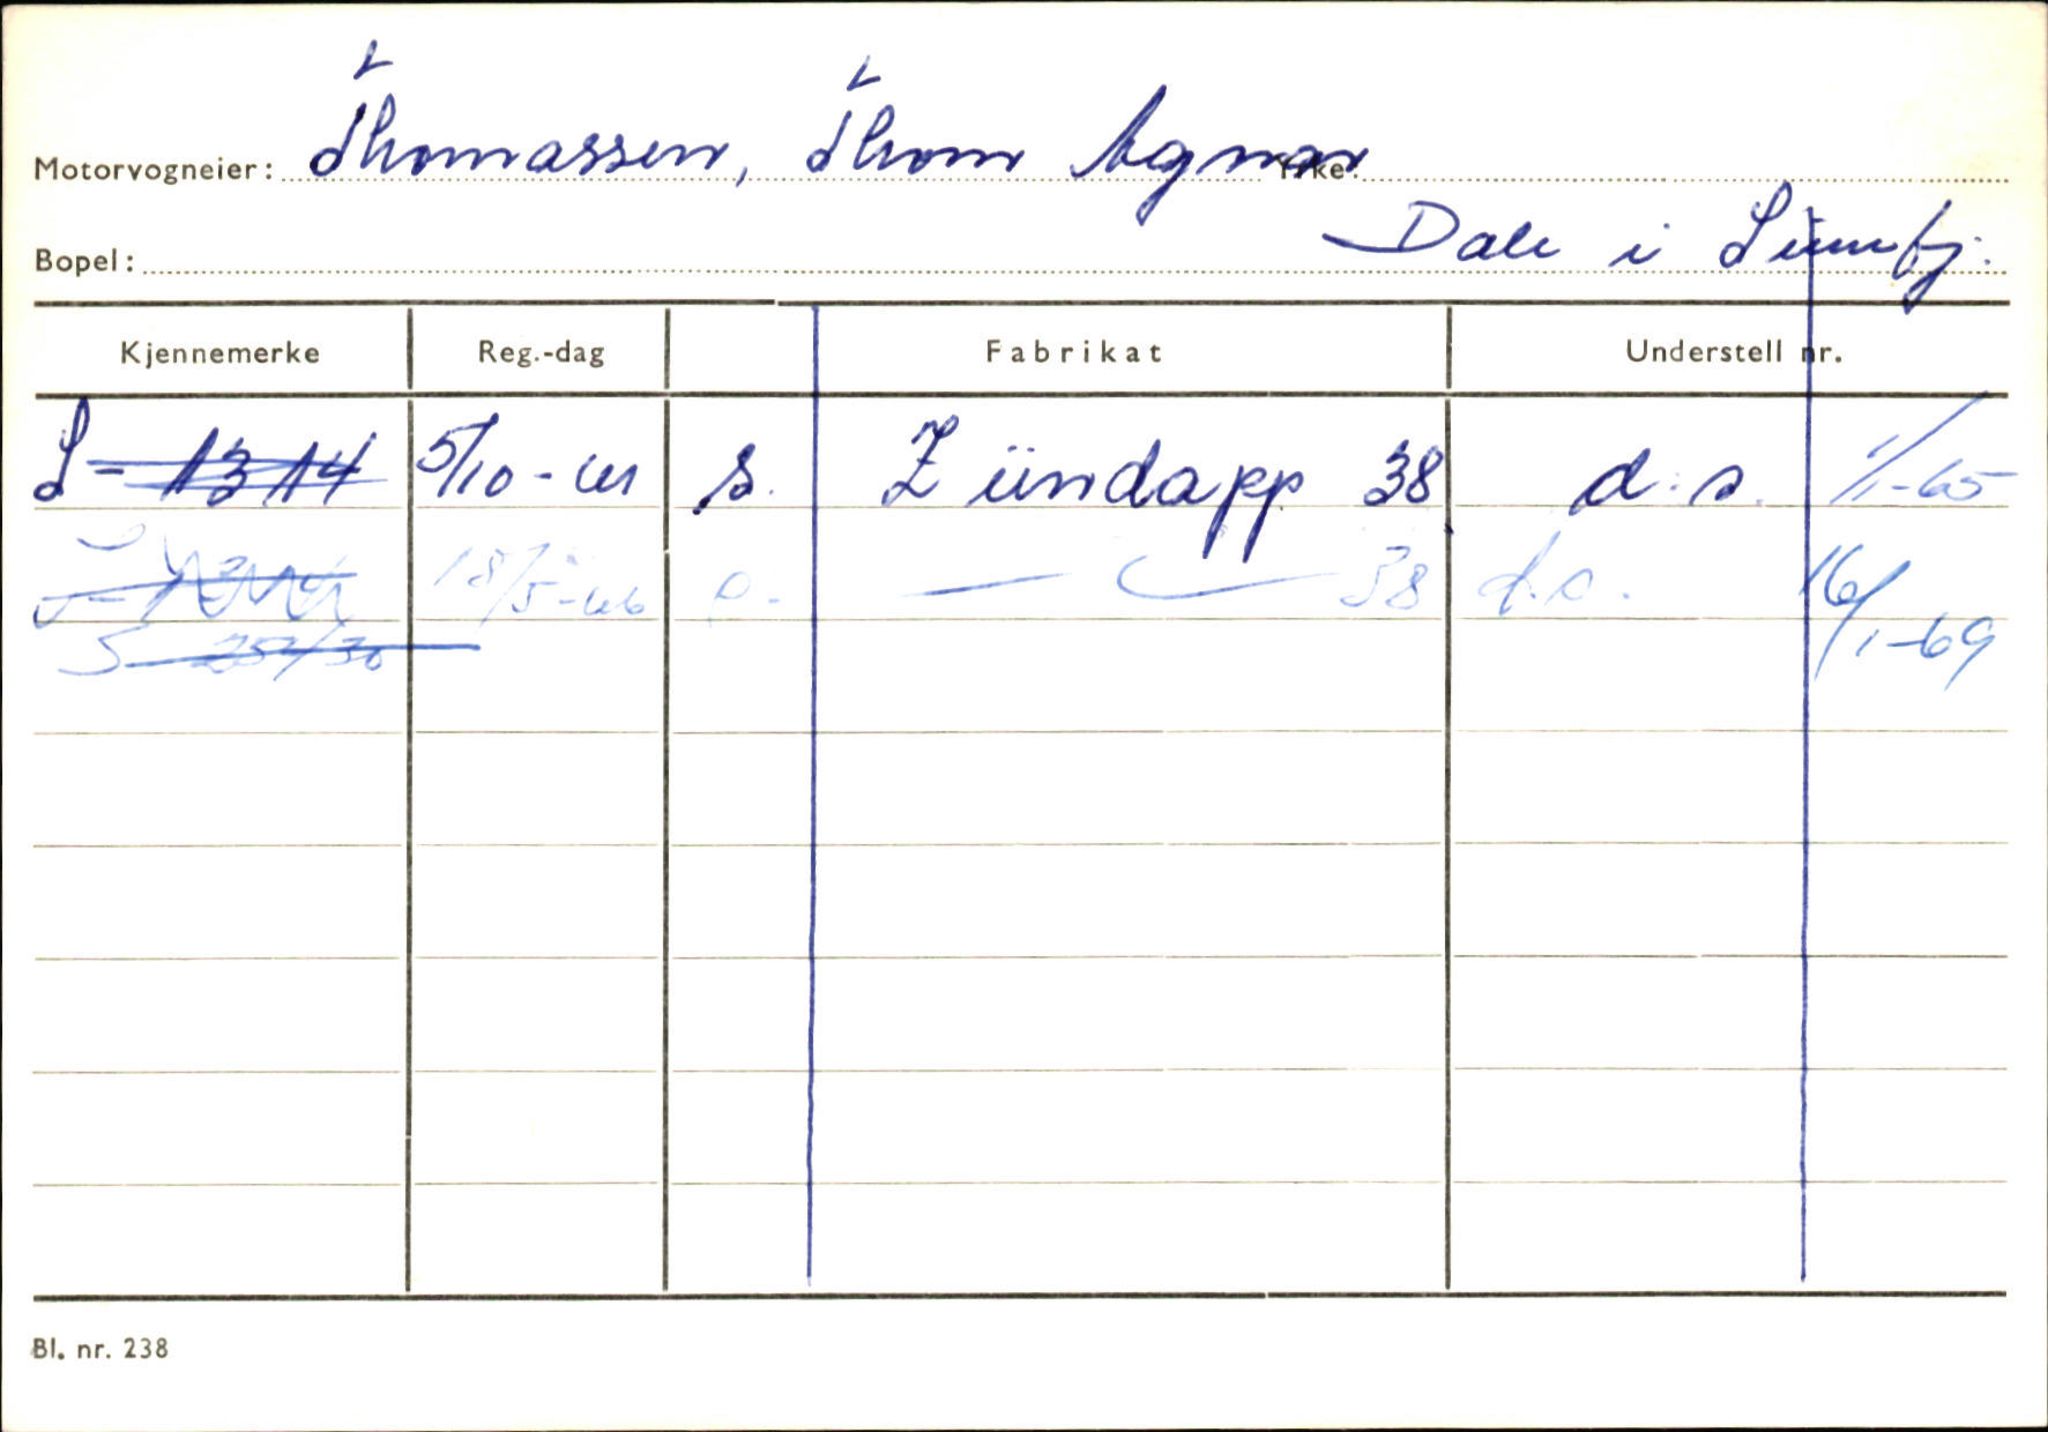 Motorvogneier: Thomassen, Thom Agnar Yrke:
Bopel: Dale i Sunnfj.
Kjennemerke Reg.-dag Fabrikat Understell nr.
S-1314 5/10-61 s. Zündapp 38 d.s. 1/1-65
18/5-66 38 d.s. 16/1-69
S
Bl. nr. 238